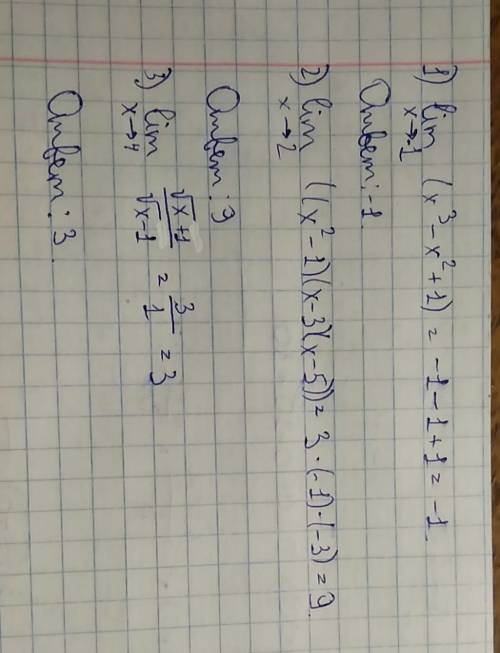 1) lim x→-1 (x³ - x² + 1) = -1 - 1 + 1 = -1
Ответ: -1.
2) lim x→2 ((x² - 1)(x - 3)(x - 5)) = 3 · (-1) · (-3) = 9.
Ответ: 9
3) lim x→4 (√x + 1)/(√x - 1) = 3/1 = 3
Ответ: 3.